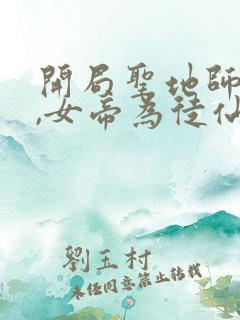 開局聖地師
,女帝為徒仙
劉玉村
未經同意禁止轉載